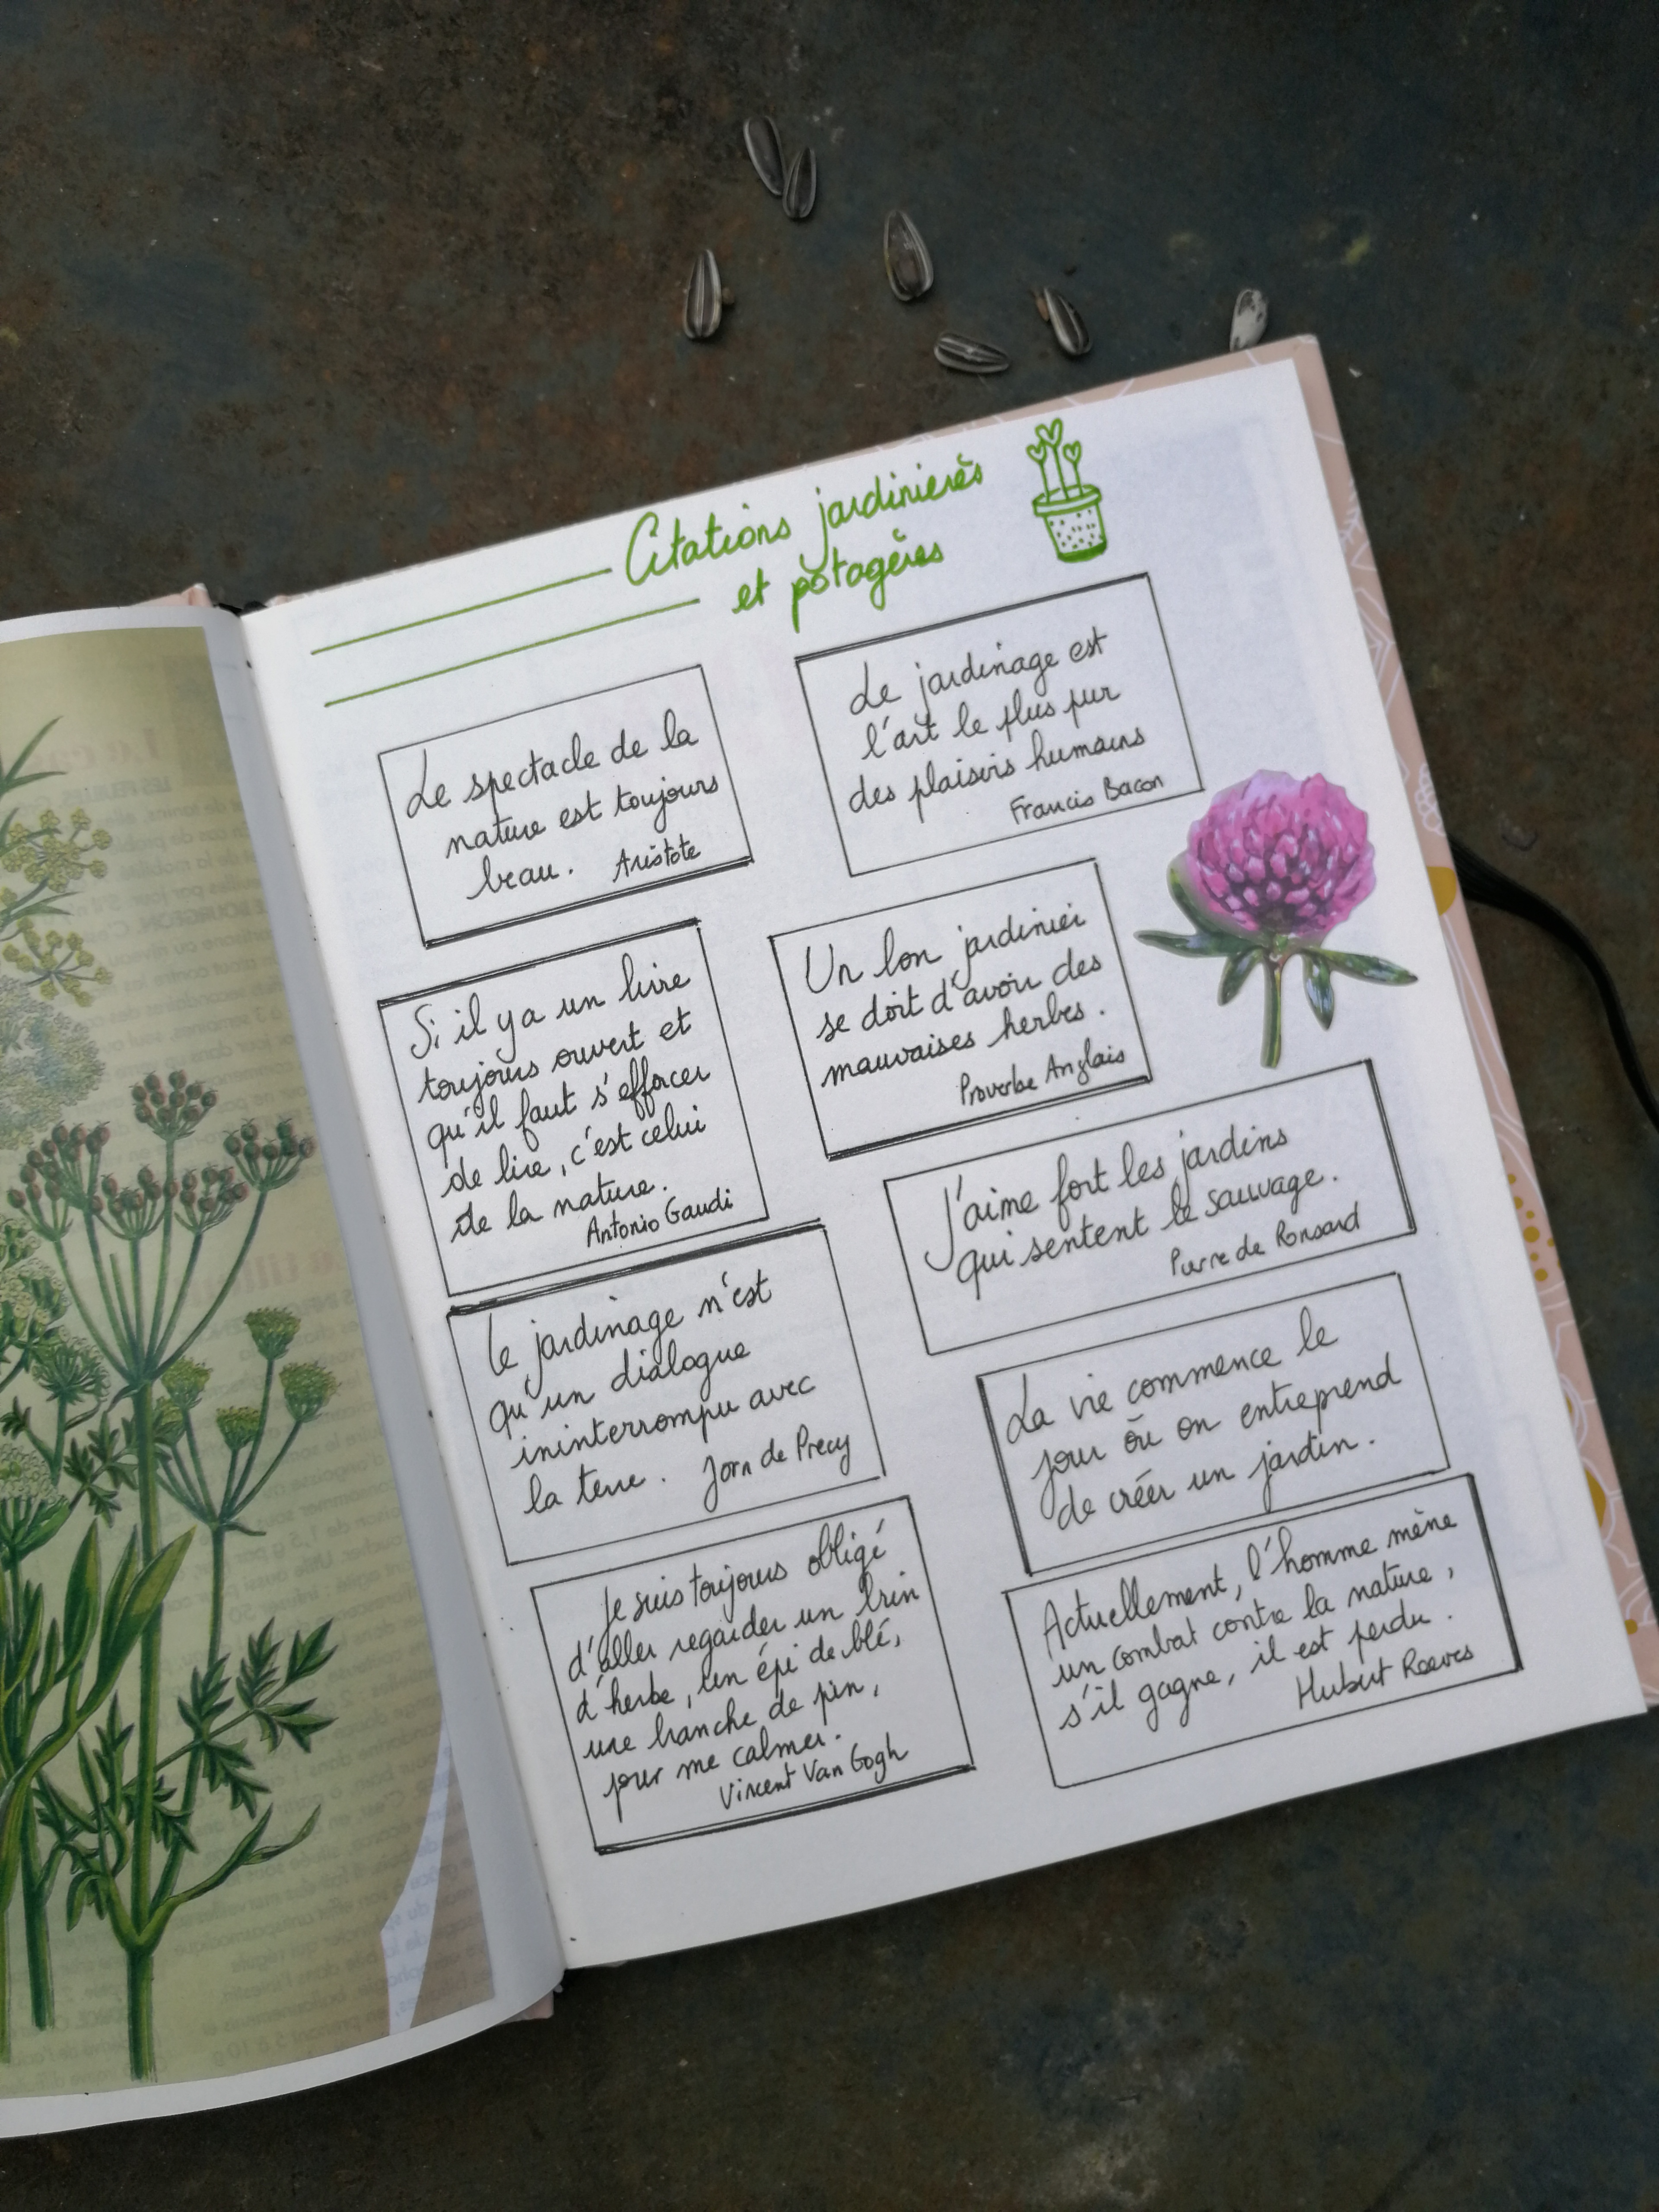 Citations jardinières
et potagères
Le spectacle de la
nature est toujours
beau. Aristote
Le jardinage est
l'art le plus pur
des plaisirs humains
Francis Bacon
Si il y a un livre
toujours ouvert et
qu'il faut s'efforcer
de lire, c'est celui
de la nature.
Antonio Gaudi
Un bon jardinier
se doit d'avoir des
mauvaises herbes.
Proverbe Anglais
J'aime fort les jardins
qui sentent le sauvage.
Pierre de Ronsard
Le jardinage n'est
qu'un dialogue
ininterrompu avec
la terre. Jorn de Precy
La vie commence le
jour où on entreprend
de créer un jardin.
Je suis toujours obligé
d'aller regarder un brin
d'herbe, un épi de blé,
une branche de pin,
pour me calmer.
Vincent Van Gogh
Actuellement, l'homme mène
un combat contre la nature,
s'il gagne, il est perdu.
Hubert Reeves